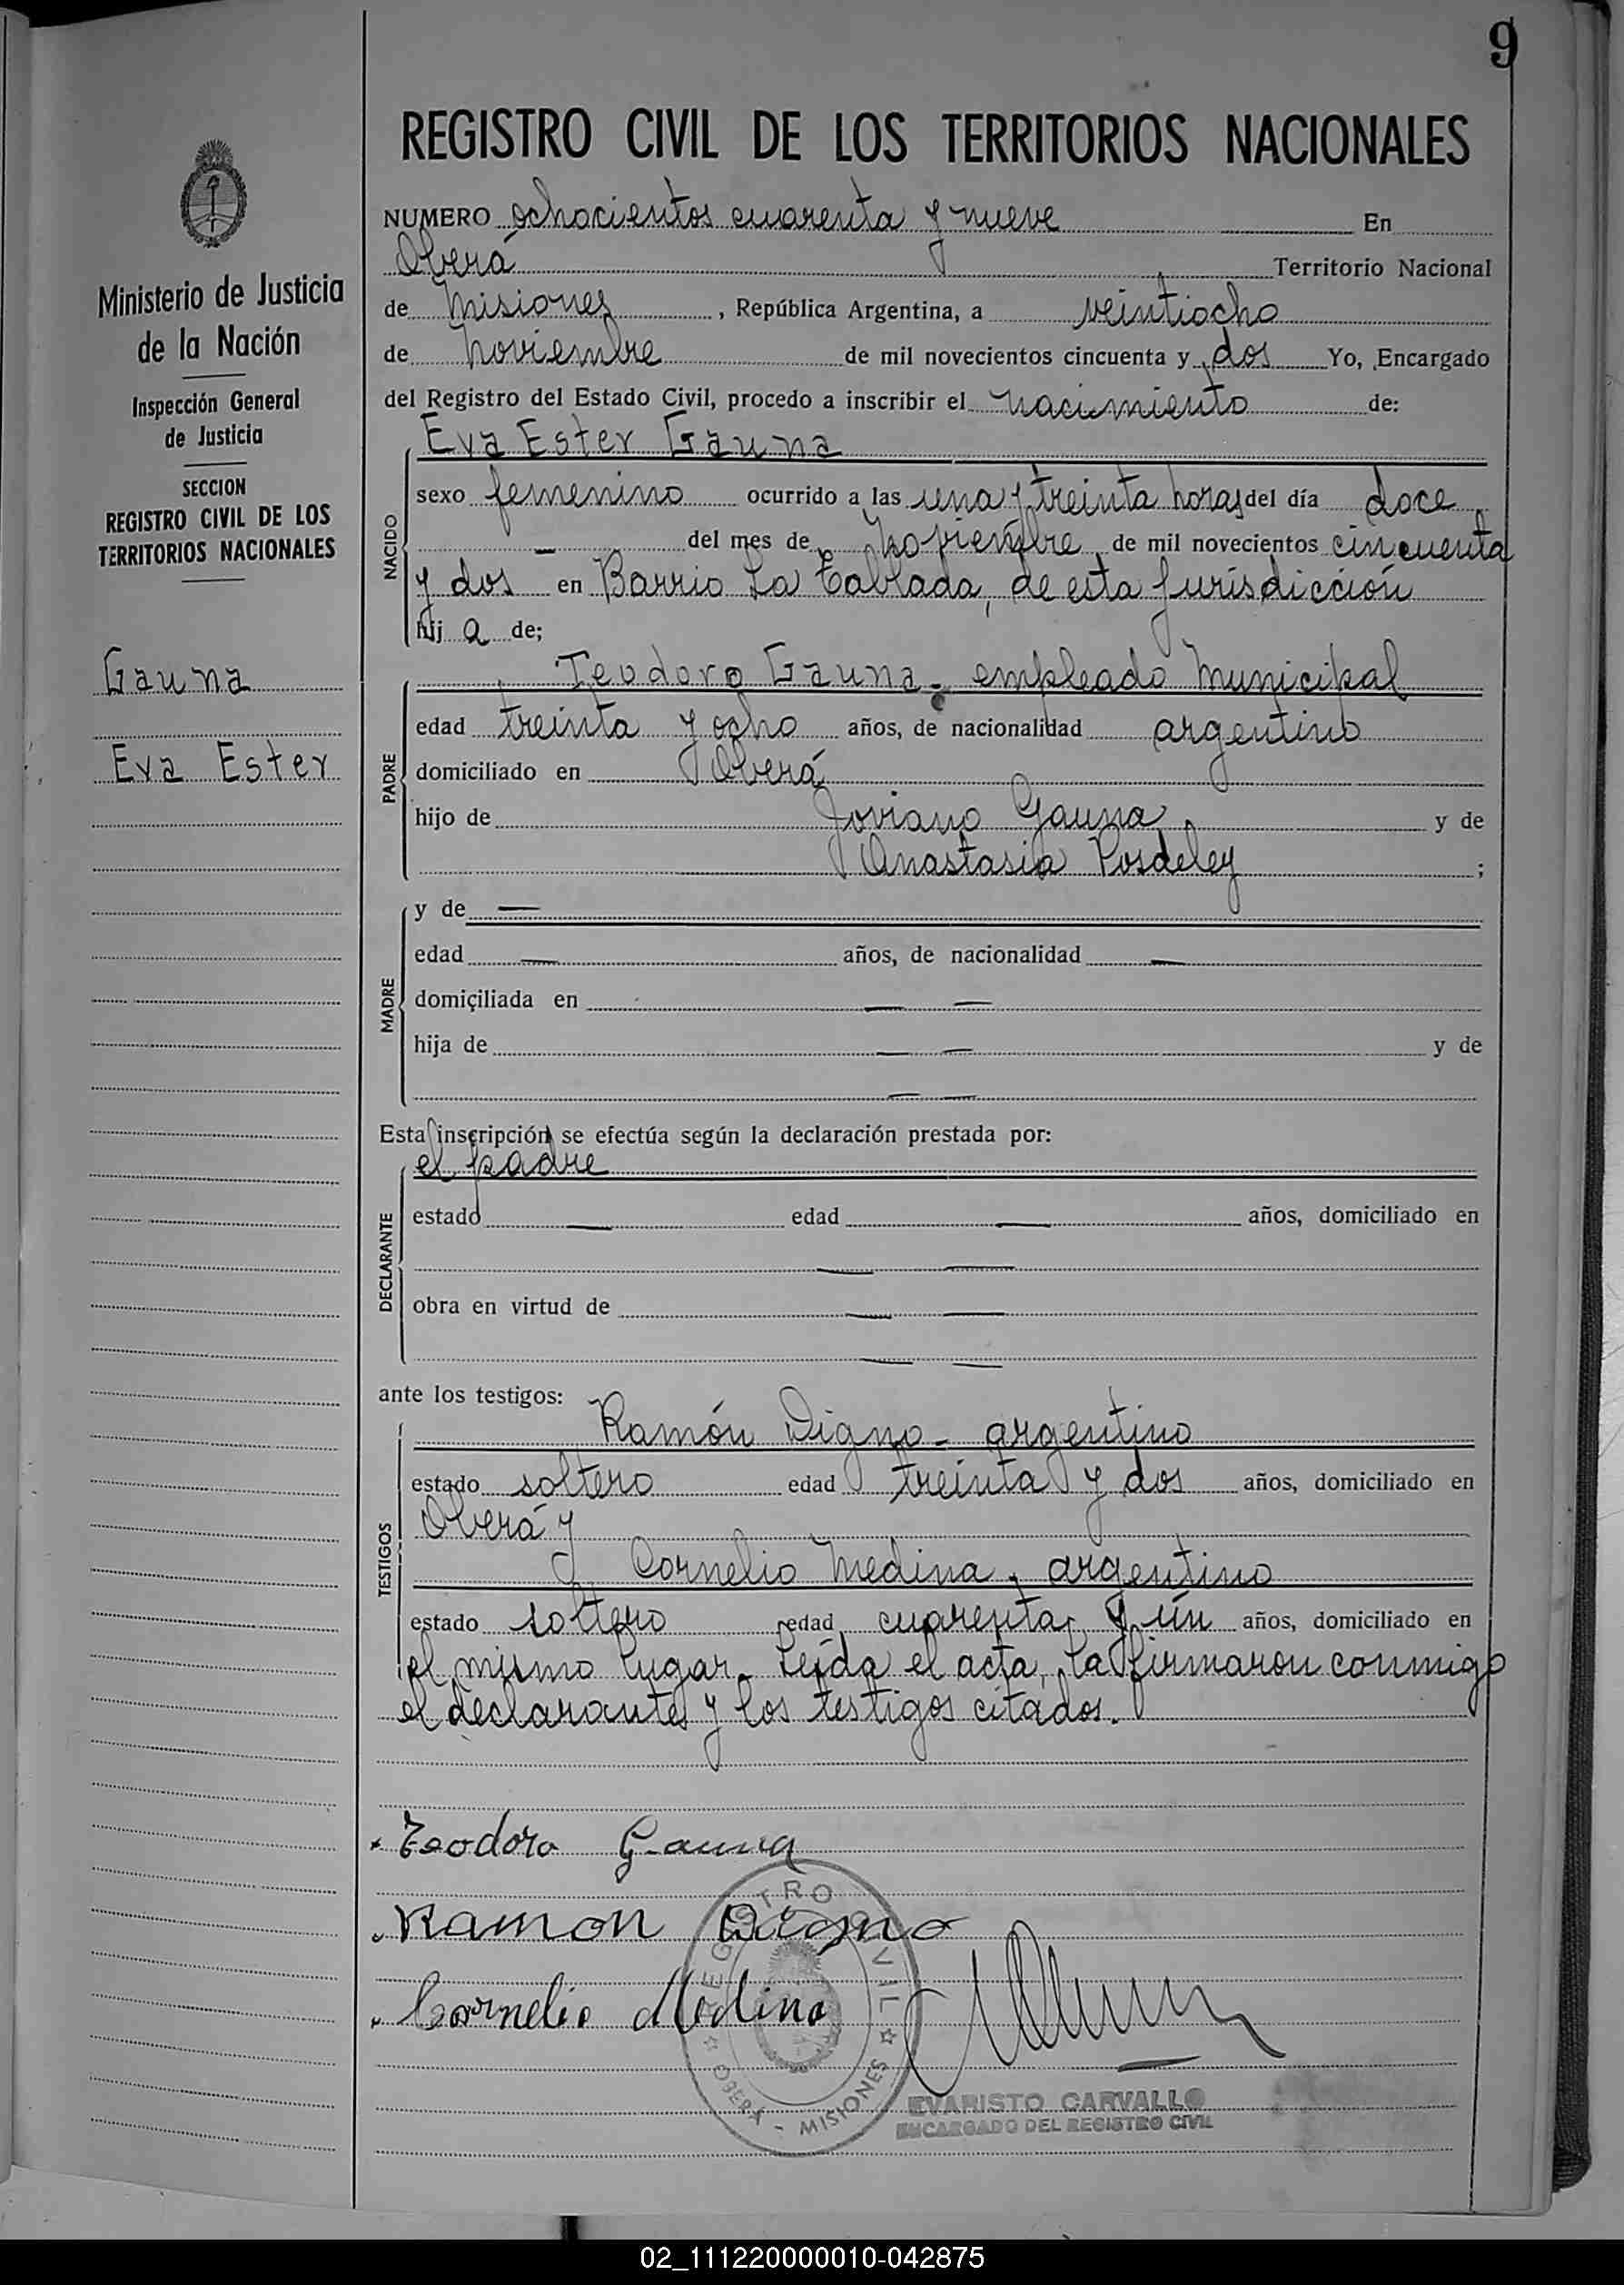 9
REGISTRO CIVIL DE LOS TERRITORIOS NACIONALES
Ministerio de Justicia
de la Nación
Inspección General
de Justicia
SECCION
REGISTRO CIVIL DE LOS
TERRITORIOS NACIONALES
Gauna
Eva Ester
NUMERO ochocientos cuarenta y nueve En
Oberá Territorio Nacional
de Misiones, República Argentina, a veintiocho
de noviembre de mil novecientos cincuenta y dos Yo, Encargado
del Registro del Estado Civil, procedo a inscribir el nacimiento de:
Eva Ester Gauna
NACIDO
sexo femenino ocurrido a las una y treinta horas del día doce
— del mes de noviembre de mil novecientos cincuenta
y dos en Barrio La Tablada, de esta jurisdicción
hij a de;
PADRE
Teodoro Gauna - empleado municipal
edad treinta y ocho años, de nacionalidad argentino
domiciliado en Oberá
hijo de Joviano Gauna y de
Anastasia Posdeley ;
MADRE
y de —
edad — años, de nacionalidad —
domiciliada en — —
hija de — — y de
— —
Esta inscripción se efectúa según la declaración prestada por:
el padre
DECLARANTE
estado — edad — años, domiciliado en
— —
obra en virtud de — —
— —
ante los testigos:
TESTIGOS
Ramón Digno - argentino
estado soltero edad treinta y dos años, domiciliado en
Oberá y
Cornelio Medina, argentino
estado soltero edad cuarenta y ún años, domiciliado en
el mismo lugar. Leída el acta, la firmaron conmigo
el declarante y los testigos citados.
Teodoro Gauna
Ramon Digno
Cornelio Medina
REGISTRO CIVIL
OBERA - MISIONES
EVARISTO CARVALLO
ENCARGADO DEL REGISTRO CIVIL
02_111220000010-042875